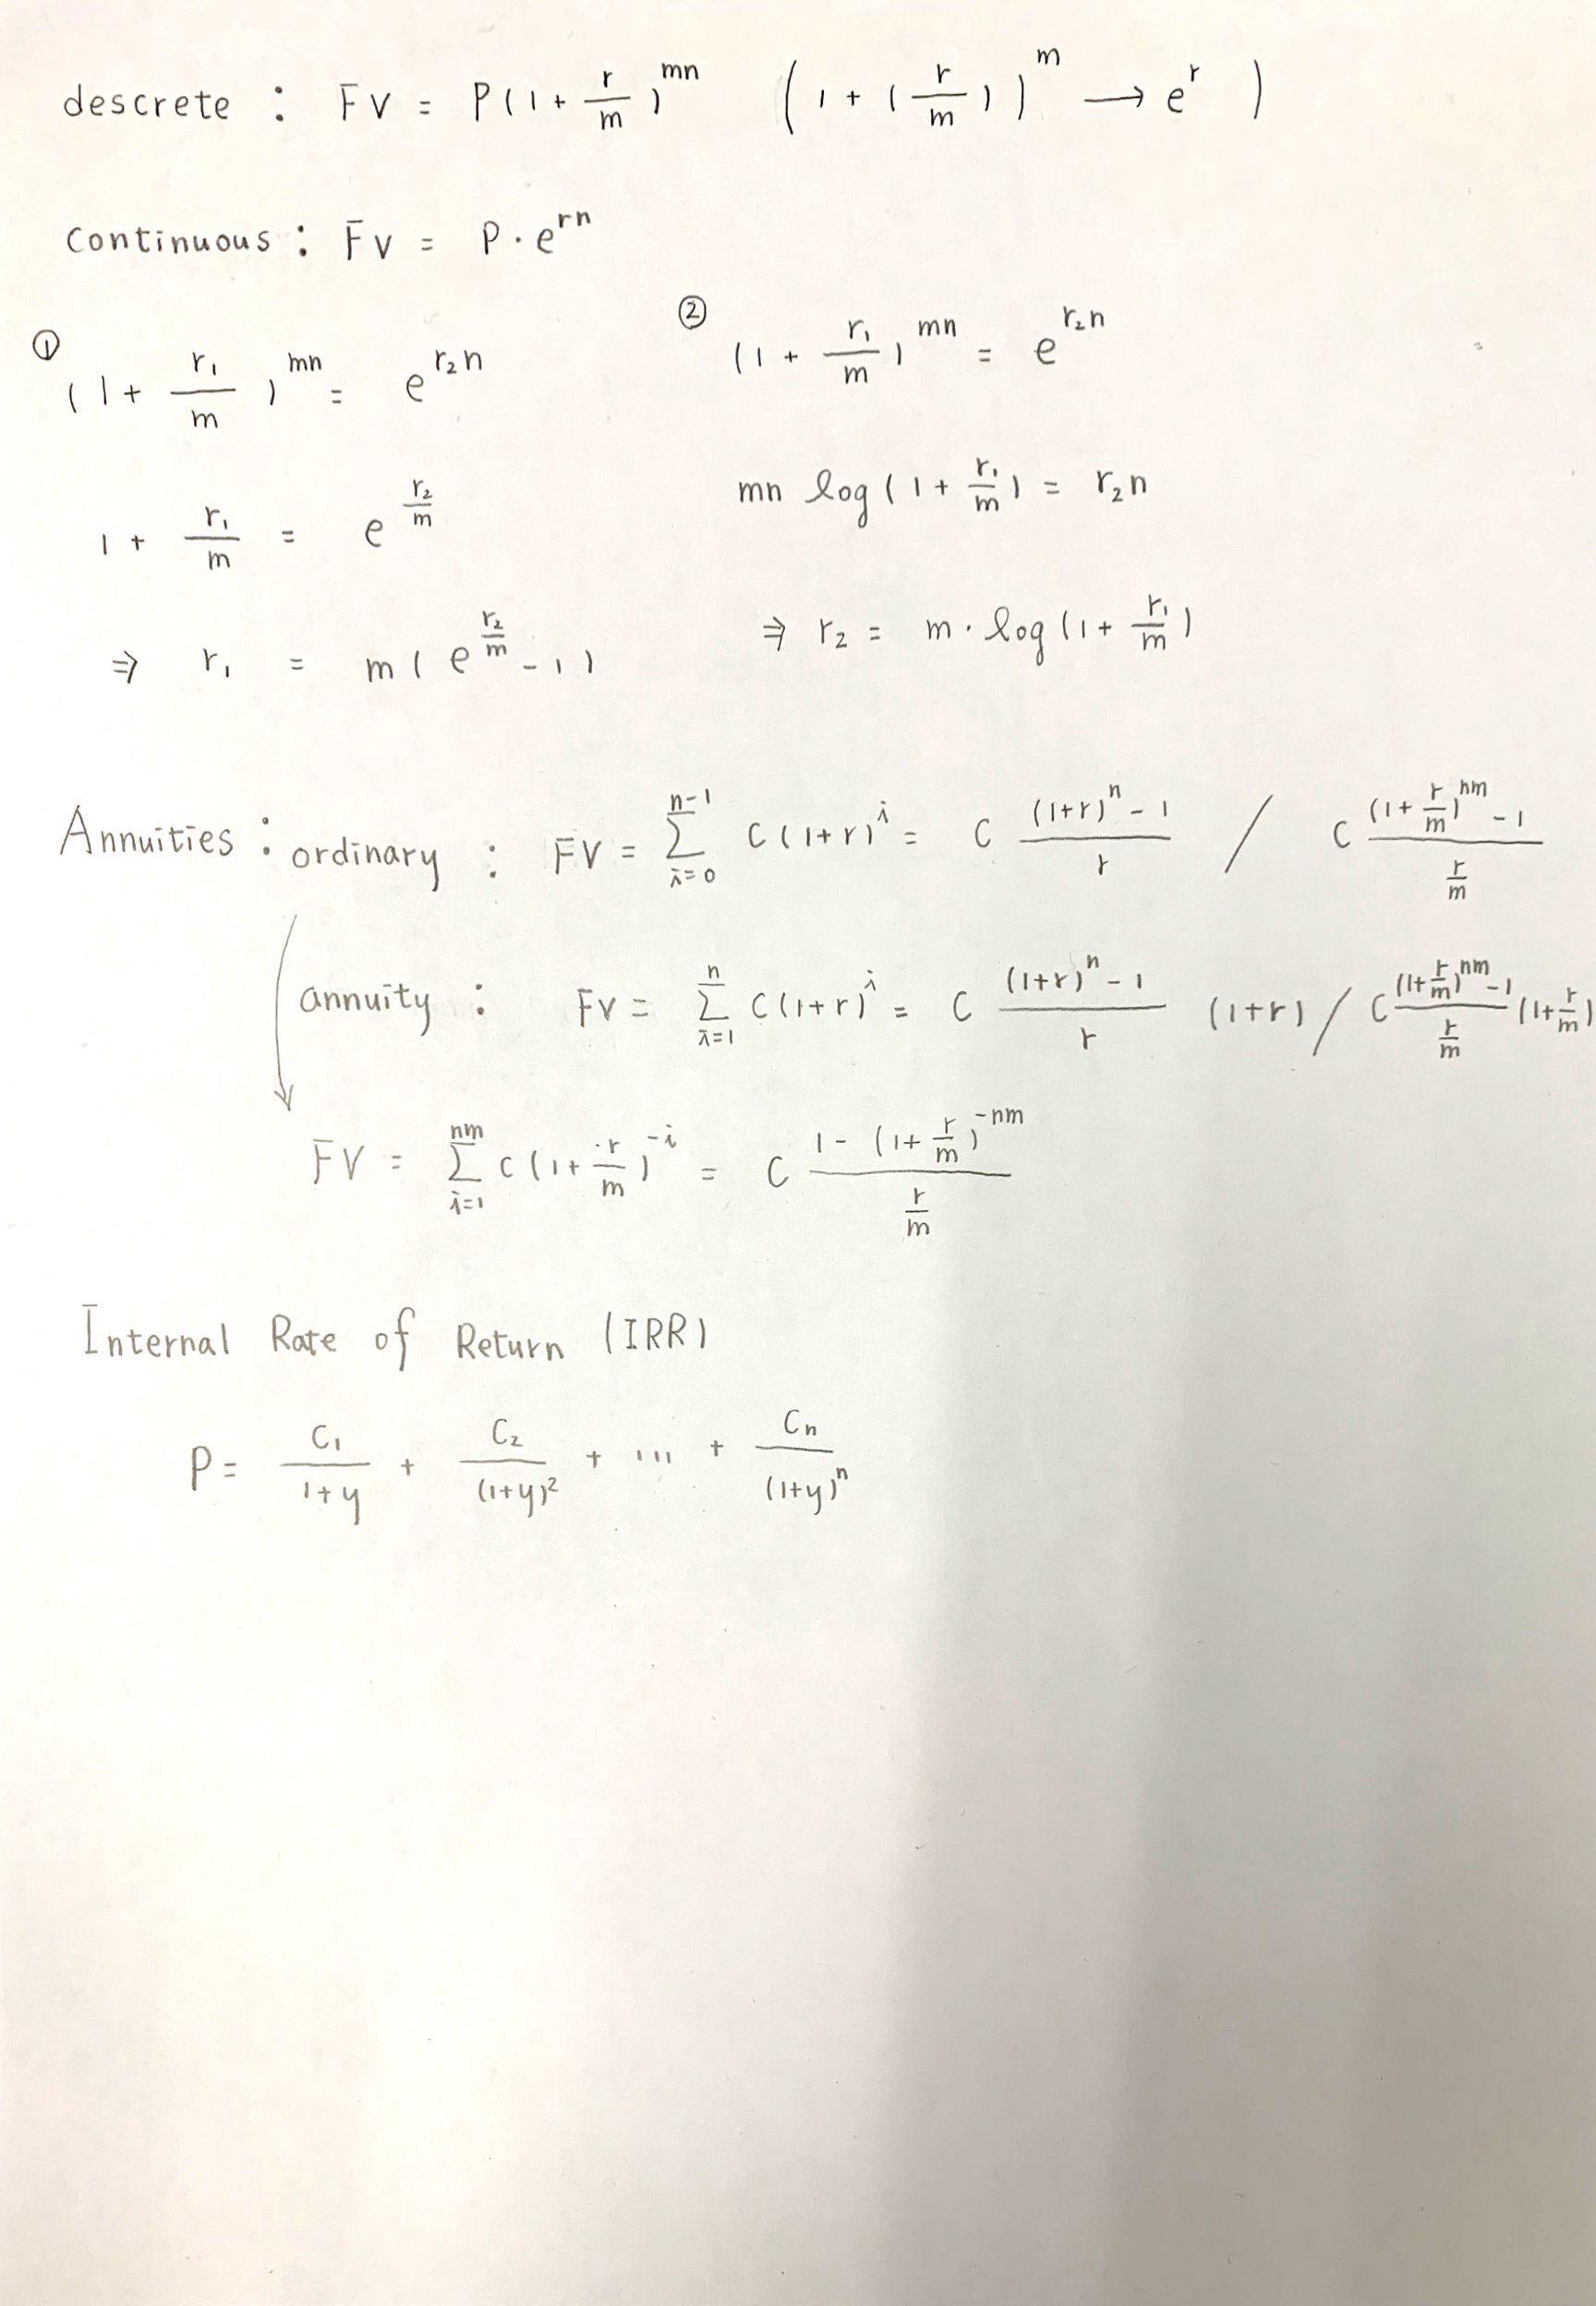 descrete : FV = P(1 + r/m)^mn (1 + (r/m))^m → e^r )
continuous : FV = P · e^rn
① (1 + r₁/m)^mn = e^r₂n
1 + r₁/m = e^(r₂/m)
⇒ r₁ = m(e^(r₂/m) - 1)
② (1 + r₁/m)^mn = e^r₂n
mn log(1 + r₁/m) = r₂n
⇒ r₂ = m · log(1 + r₁/m)
Annuities : ordinary : FV = Σ_{i=0}^{n-1} C(1+r)^i = C ((1+r)^n - 1)/r / C ((1 + r/m)^nm - 1)/(r/m)
annuity : FV = Σ_{i=1}^{n} C(1+r)^i = C ((1+r)^n - 1)/r (1+r) / C ((1+r/m)^nm - 1)/(r/m) (1+r/m)
FV = Σ_{i=1}^{nm} C(1 + r/m)^-i = C (1 - (1 + r/m)^-nm)/(r/m)
Internal Rate of Return (IRR)
P = C₁/(1+y) + C₂/(1+y)² + ... + Cn/(1+y)^n